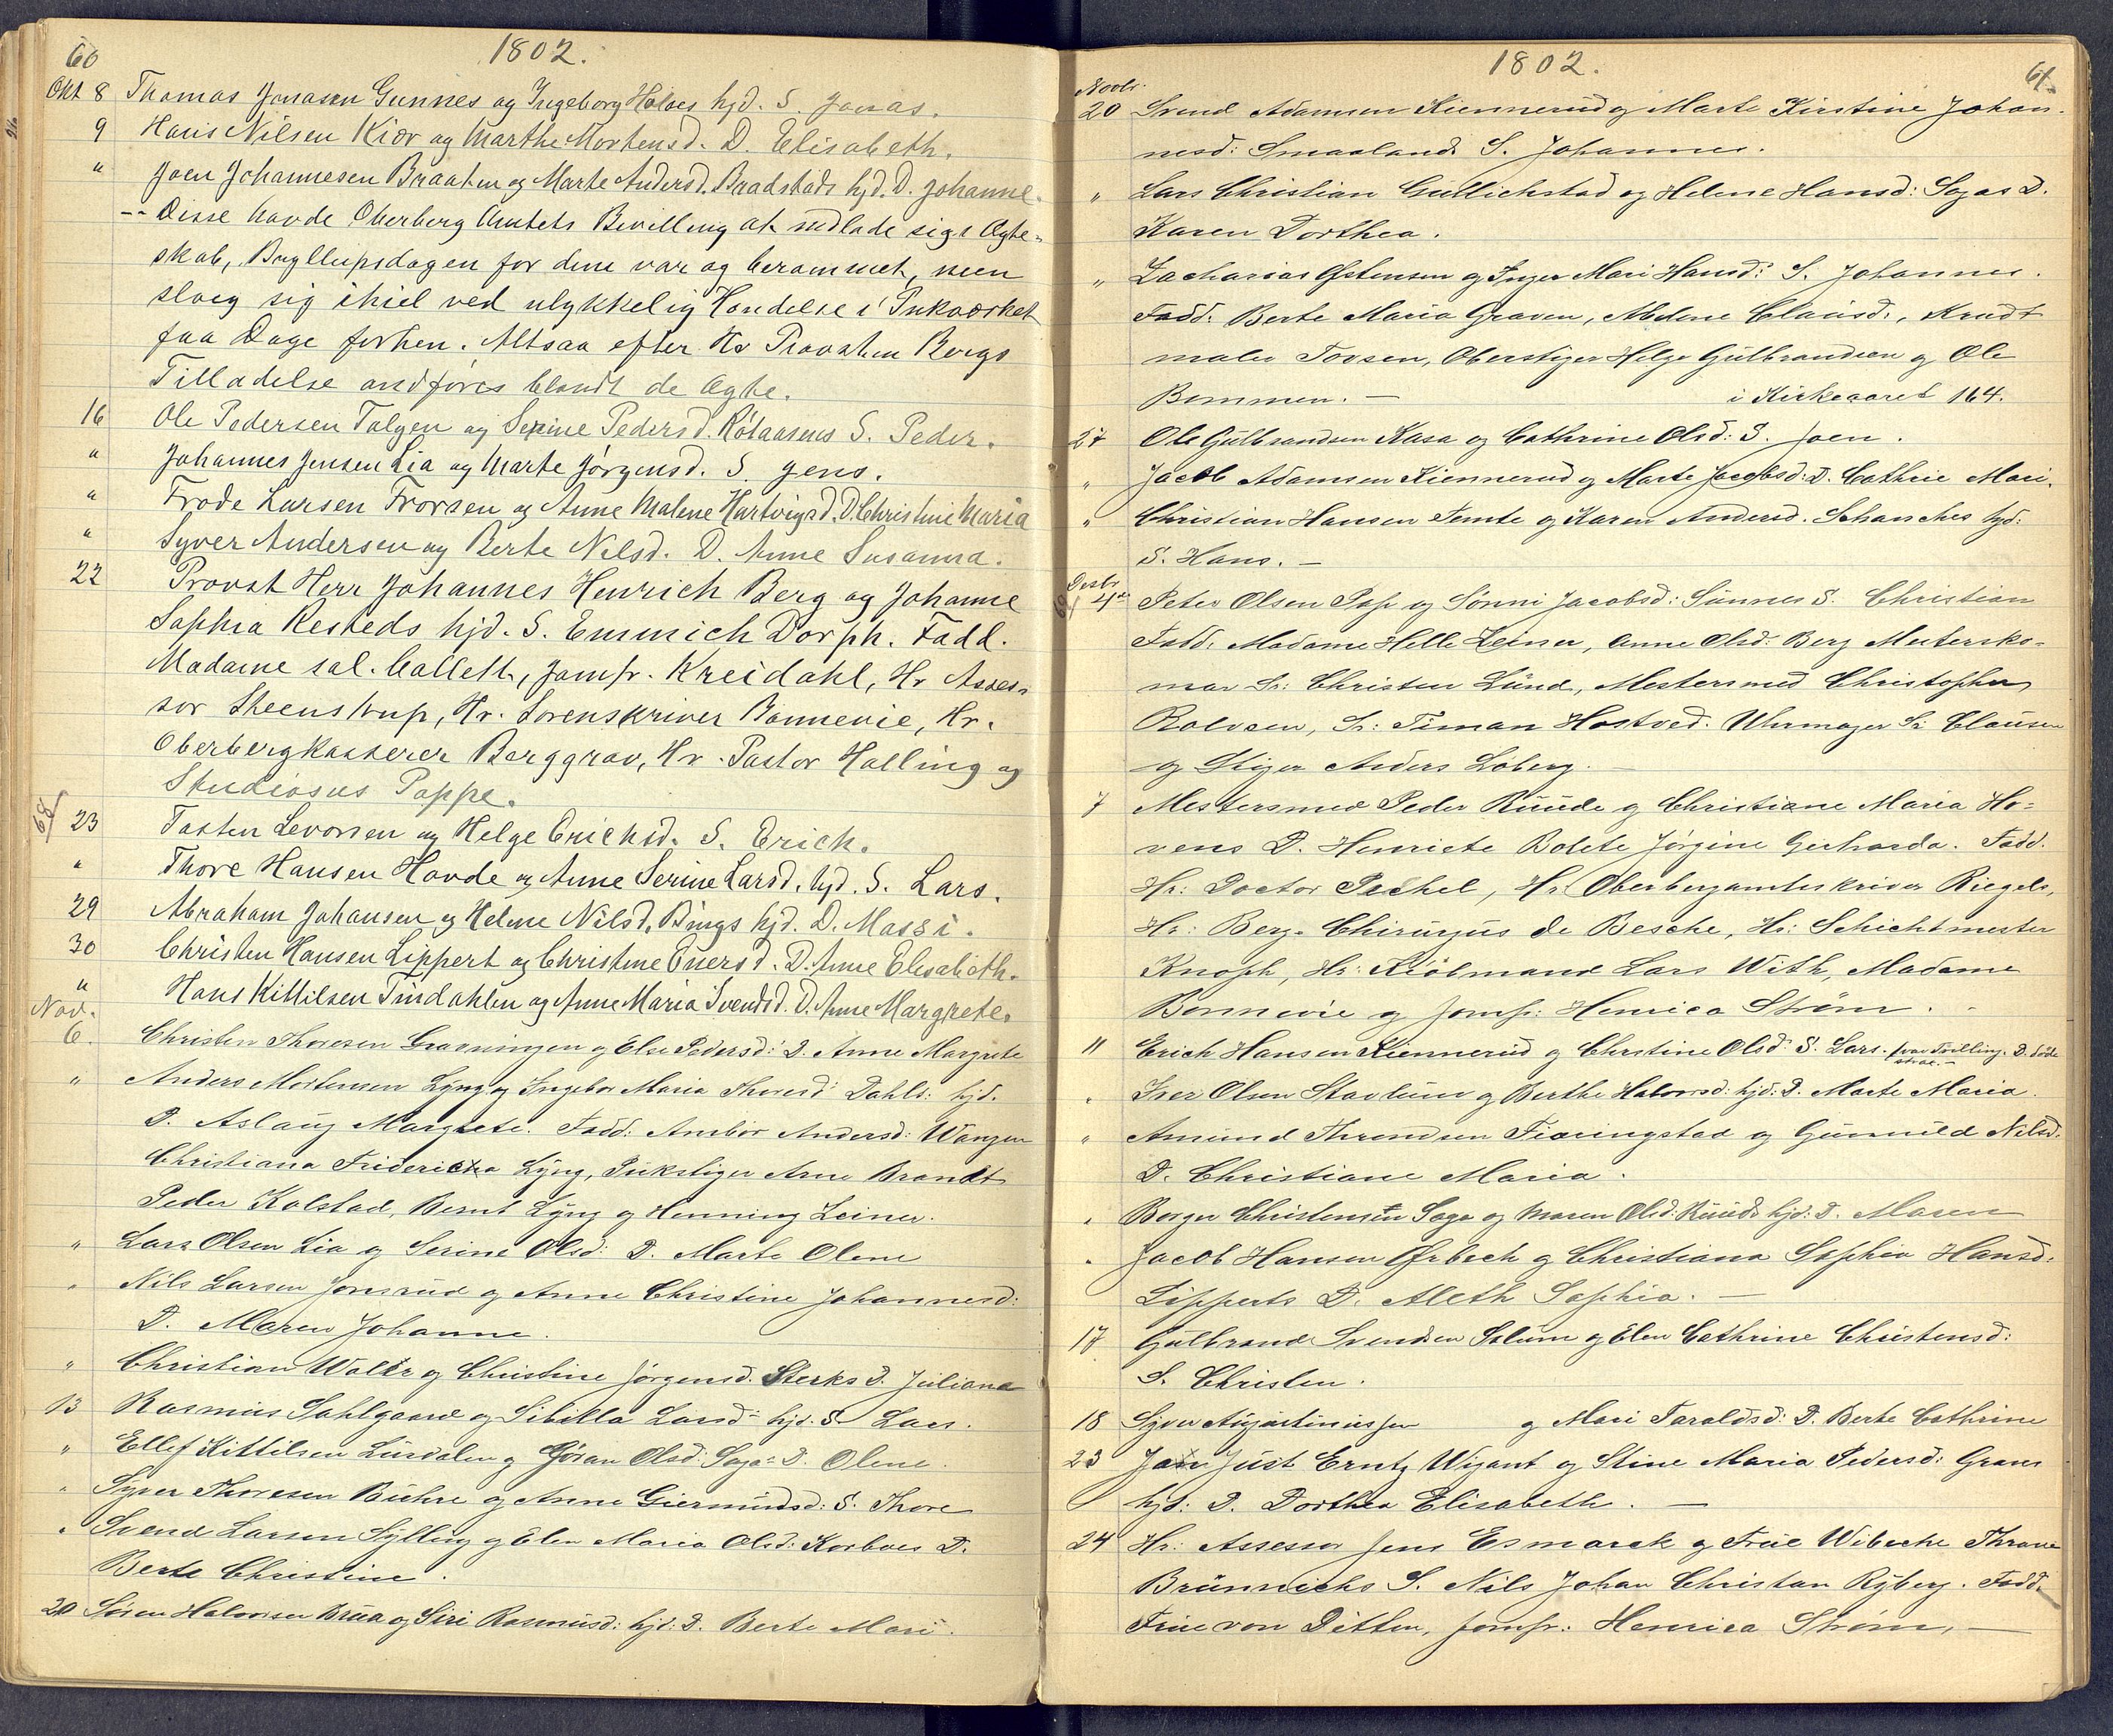 60
1802.
Okt 8 Thomas Jonasen Gunnes og Ingeborg Holoes hjd. S. Jonas.
9 Hans Nilsen Kior og Marthe Mortensd. D. Elisabeth.
" Joen Johannesen Braaten og Marte Andersd. Baadstads hjd. D. Johanne.
-- Disse havde Oberberg Amtets Bevilling at indlade sig i Ægte=
skab, Bryllupsdagen for dem var og berammet, men
slog sig ihiel ved ulykkelig Hændelse i Pukværket
faa Dage forhen. Altsaa efter Hr Provsten Bergs
Tilladelse andføres blandt de Ægte.
16 Ole Pedersen Talgen og Serine Pedersd. Kølaasens S. Peder.
" Johannes Jensen Lia og Marte Jørgensd. S. Jens.
" Frode Larsen Frorsen og Anne Malene Hartvigsd. D. Christine Maria
" Syver Andersen og Berte Nilsd. D. Anne Susanna.
22 Provst Herr Johannes Henrich Berg og Johanne
Sophia Resteds hjd. S. Emmich Dorph. Fadd.
Madame sal. Collett, Jomfr. Kreidahl, Hr Asses=
sor Steenstrup, Hr. Sorenskriver Bonnevie, Hr.
Oberbergkasserer Berggrav, Hr. Pastor Halling og
Studiosus Poppe.
68/ 23 Tosten Levorsen og Helge Erichsd. S. Erich.
" Thore Hansen Hovde og Anne Serine Larsd. hjd. S. Lars.
29 Abraham Johansen og Helene Nilsd. Bings hjd. D. Massi.
30 Christen Hansen Lippert og Christine Eversd. D. Anne Elisabeth.
" Hans Kittilsen Tindahlen og Anne Maria Svendsd. D. Anne Margrete.
Nov.
6. Christen Thoresen Gravningen og Else Pedersd: D. Anne Margrete
" Anders Mortensen Lyng og Ingebor Maria Thoresd: Dahls: hjd.
D. Aslaug Margrete. Fadd: Anebor Andersd: Wangen
Christiana Fridericka Lyng, Pukstiger Arne Brandt
Peder Kolstad, Bernt Lyng og Henning Leiner.
" Lars Olsen Lia og Serine Olsd: D. Marte Olene
" Nils Larsen Jonsrud og Anne Christine Johannesd:
D. Maren Johanne.
" Christian Walter og Christine Jørgensd. Sterks D. Juliane
13 Rasmus Sahlgaard og Sibilla Larsd: hjd. S. Lars.
" Ellef Kittilsen Lurdalen og Gøran Olsd. Saga: D. Olene.
" Syver Thoresen Buhre og Anne Giermundsd: S. Thore
" Svend Larsen Sylling og Elen Maria Olsd: Korboes D.
Berte Christine.
20 Søren Halvorsen Brua og Siri Rasmusd: hjd: D. Berte Mari.
1802.
61.
Novbr.
20 Svend Adamsen Kiennerud og Marte Kirstine Johan=
nesd: Smaalands S. Johannes.
" Lars Christian Gullichstad og Helene Hansd: Sagas D.
Karen Dorthea.
" Zacharias Østensen og Inger Mari Hansd: S. Johannes.
Fadd. Berte Maria Graven, Abelone Clausd., Krudt
maler Tovsen, Oberstiger Helge Gulbrandsen og Ole
Bommen. — i Kirkeaaret 164.
27 Ole Gulbrandsen Kasa og Cathrine Olsd: S. Joen.
" Jacob Adamsen Kiennerud og Marte Jacobsd: D. Cathrie Mari.
" Christian Hansen Temte og Karen Andersd. Schanches hjd:
S. Hans. —
Desbr
4de Peter Olsen Post og Sønni Jacobsd: Sunnes S. Christian
Fadd. Madame Helle Leiner, Anne Olsd: Berg Mestersko=
mar Sr: Christen Lund, Mestersmed Christopher
Rolvsen, Sr: Timan Hostved. Uhrmager Sr. Clausen
og Stiger Anders Loberg. —
7 Mestersmed Peder Ruude og Christiane Maria Ho=
vens D. Henriete Bolete Jørgine Gerharda. Fadd.
Hr: Doctor Pechel, Hr. Oberbergamtsskriver Riegels,
Hr: Berg-Chirurgus de Besche, Hr: Schichtmester
Knoph, Hr: Kiøbmand Lars With, Madame
Bonnevie og Jomfr: Henrica Strøm.
11 Erich Hansen Kiennerud og Christine Olsd: S. Lars. / var Tvilling. D. døde
strax. —
" Iver Olsen Stavlum og Berthe Halvorsd: hjd: D. Marte Maria.
" Amund Throndsen Fieringstad og Gunnild Nilsd.
D. Christiane Maria.
" Borger Christensen Saga og Maren Olsd: Ruuds hjd: D. Maren
" Jacob Hansen Ørbech og Christiana Sophia Hansd:
Lipperts D. Aleth Sophia. —
17 Gulbrand Svendsen Solum og Elen Cathrine Christensd:
S. Christen.
18 Syver Augustinussen og Mari Taraldsd: D. Berte Cathrine
23 Jan Just Erntz Wigant og Stine Maria Pedersd: Graus
hjd: D. Dorthea Elisabeth. —
24 Hr: Assessor Jens Esmarck og Frue Wibecke Thrane
Brünnichs S. Nils Johan Christian Ryberg. Fadd.
Frue von Ditten, Jomfr: Henrica Strøm, —